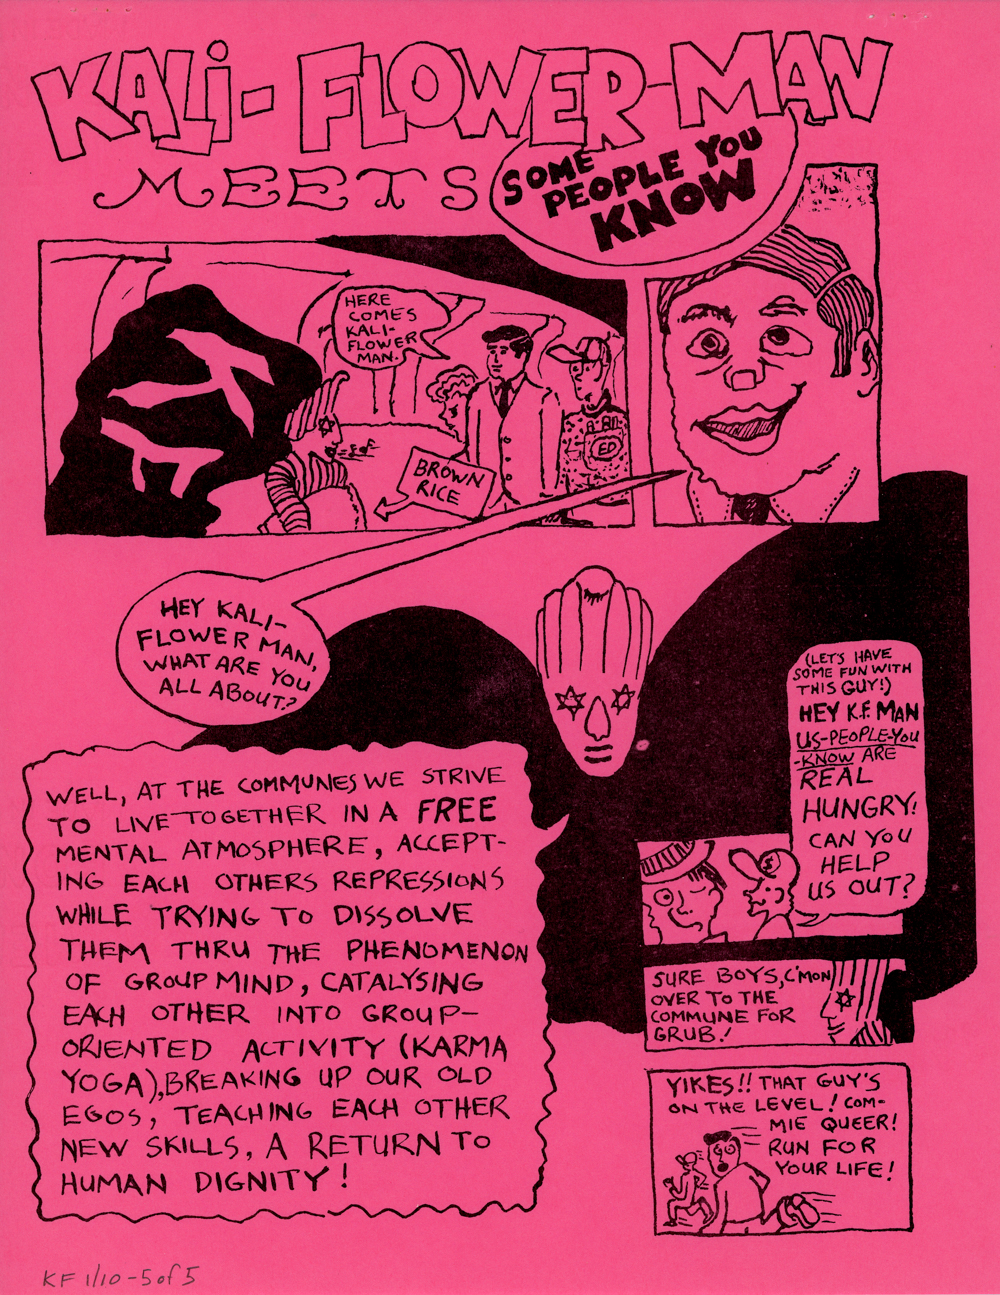 KALI-FLOWER-MAN
MEETS
SOME
PEOPLE YOU
KNOW
HERE
COMES
KALI-
FLOWER
MAN.
BROWN
RICE
ED
HEY KALI-
FLOWER MAN,
WHAT ARE YOU
ALL ABOUT?
WELL, AT THE COMMUNES WE STRIVE
TO LIVE TOGETHER IN A FREE
MENTAL ATMOSPHERE, ACCEPT-
ING EACH OTHERS REPRESSIONS
WHILE TRYING TO DISSOLVE
THEM THRU THE PHENOMENON
OF GROUP MIND, CATALYSING
EACH OTHER INTO GROUP-
ORIENTED ACTIVITY (KARMA
YOGA), BREAKING UP OUR OLD
EGOS, TEACHING EACH OTHER
NEW SKILLS, A RETURN TO
HUMAN DIGNITY!
(LET'S HAVE
SOME FUN WITH
THIS GUY!)
HEY K.F. MAN
US-PEOPLE-YOU
-KNOW ARE
REAL
HUNGRY!
CAN YOU
HELP
US OUT?
SURE BOYS, C'MON
OVER TO THE
COMMUNE FOR
GRUB!
YIKES!! THAT GUY'S
ON THE LEVEL! COM-
MIE QUEER!
RUN FOR
YOUR LIFE!
KF 1/10-5 of 5